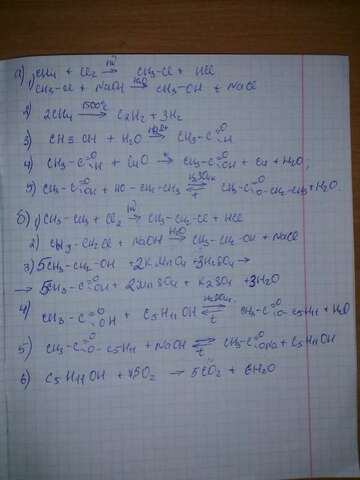 а) 1) CH4 + Cl2 →hν CH3-Cl + HCl
CH3-Cl + NaOH →H2O CH3-OH + NaCl
2) 2CH4 →1500°C C2H2 + 3H2
3) CH≡CH + H2O →Hg2+ CH3-C(=O)H
4) CH3-C(=O)H + CuO → CH3-C(=O)OH + Cu + H2O;
5) CH3-C(=O)OH + HO-CH2-CH3 ⇄H2SO4, t CH3-C(=O)O-CH2-CH3 + H2O.
б) 1) CH3-CH3 + Cl2 →hν CH3-CH2-Cl + HCl
2) CH3-CH2Cl + NaOH →H2O CH3-CH2-OH + NaCl
3) 5CH3-CH2-OH + 2KMnO4 + 3H2SO4 →
→ 5CH3-C(=O)OH + 2MnSO4 + K2SO4 + 3H2O
4) CH3-C(=O)OH + C5H11OH ⇄H2SO4, t CH3-C(=O)O-C5H11 + H2O
5) CH3-C(=O)O-C5H11 + NaOH ⇄t CH3-C(=O)ONa + C5H11OH
6) C5H11OH + 7,5O2 → 5CO2 + 6H2O